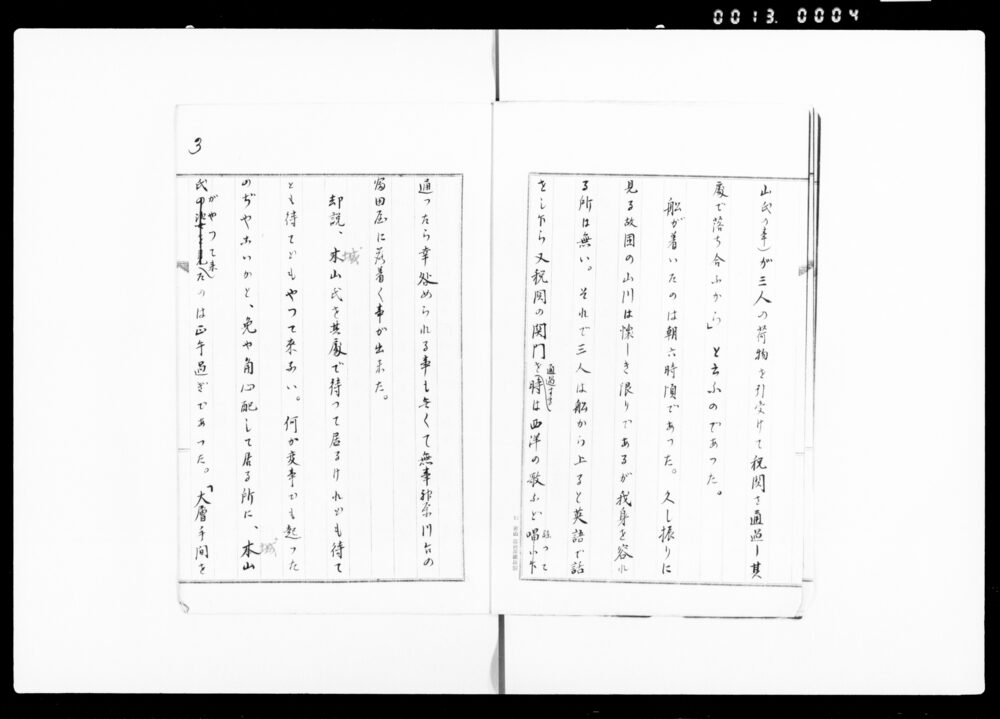 0013. 0004
山氏の事)が三人の荷物を引受けて税関を通過し其
處で落ち合ふから」と云ふのであつた。
船が着いたのは朝六時頃であつた。久し振りに
見る故国の山川は懐しき限りであるが我身を容れ
る所は無い。それで三人は船から上ると英語で話
をし乍ら又税関の関門を通過する時は西洋の歌など唱つて
3
通つたら幸咎められる事も無くて無事神奈川台の
富田屋に落着く事が出来た。
却説、木山氏を其處で待つて居るけれども待て
城
ども待てどもやつて来ない。何か変事でも起つた
のぢやないかと、兎や角心配して居る所に、木山
城
氏がやつて来たのは正午過ぎであつた。「大層手間を